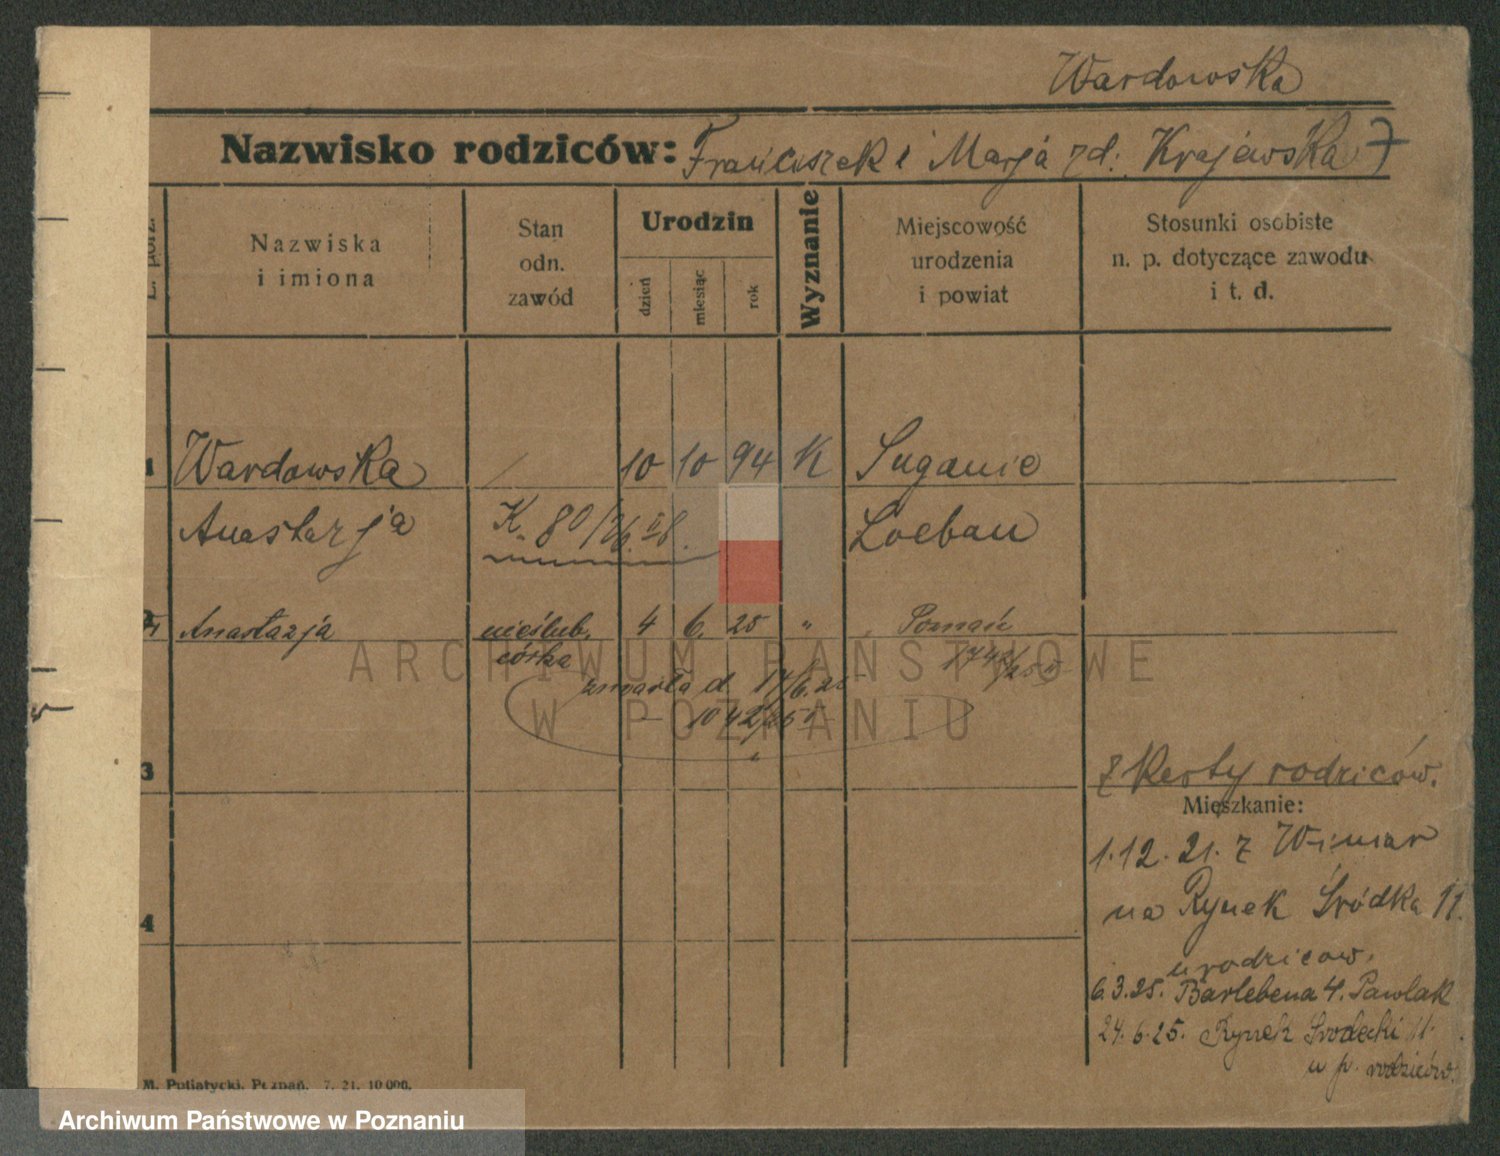 Wardowska
Nazwisko rodziców: Franciszek i Marja zd: Krajewska 7
L. porz.
Nazwiska
i imiona
Stan
odn.
zawód
Urodzin
dzień
miesiąc
rok
Wyznanie
Miejscowość
urodzenia
i powiat
Stosunki osobiste
n. p. dotyczące zawodu
i t. d.
1 Wardowska / 10 10 94 K Suganie
Anastazja K. 80/26. II 28. Loebau
2 Anastazja nieślub. 4 6. 25 " Poznań
córka
zmarła d. 17/6.25
3
z Karty rodziców.
Mieszkanie:
1.12.21. z Wimar
na Rynek Śródka 11.
4
u rodziców.
6.3.25. Barlebena 4. Pawlak
24.6.25. Rynek Środecki 11.
u p. rodziców.
M. Putiatycki, Poznań. 7. 21. 10 000.
ARCHIWUM PAŃSTWOWE
W POZNANIU
Archiwum Państwowe w Poznaniu